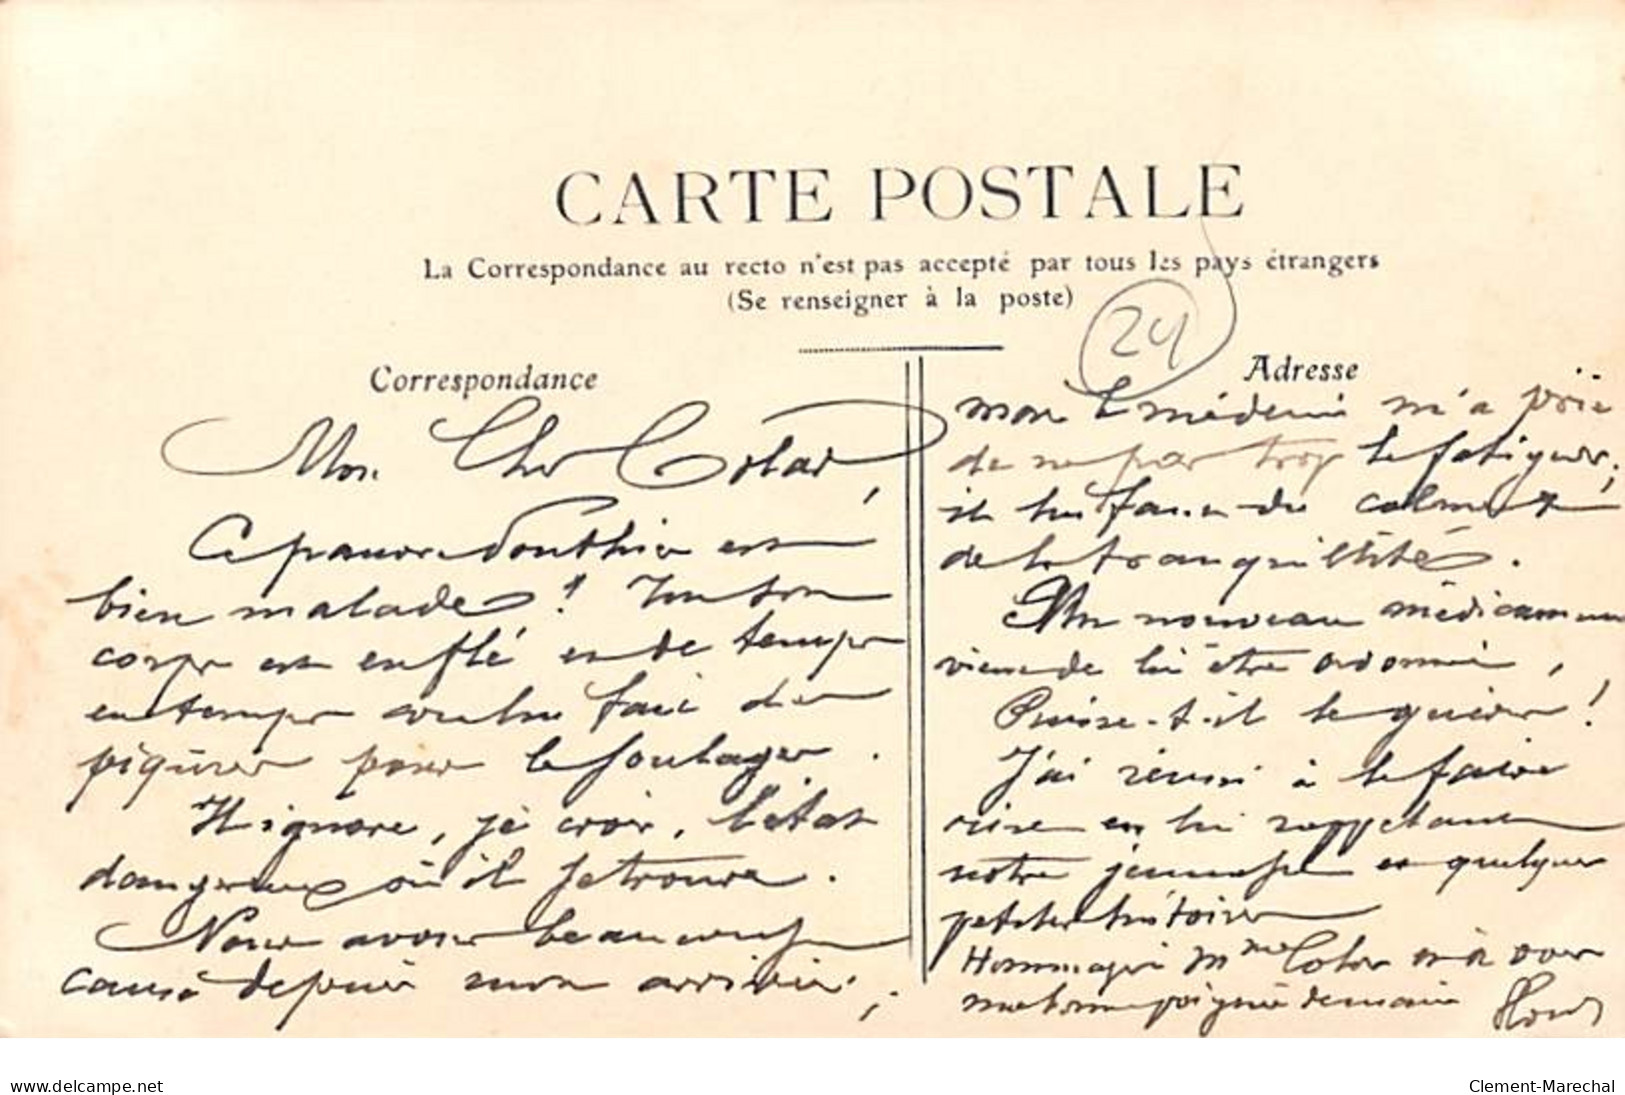 CARTE POSTALE
La Correspondance au recto n'est pas accepté par tous les pays étrangers
(Se renseigner à la poste)
24
Correspondance
Mon Cher
Ce pauvre est
bien malade ! Tout son
corps est enflé et de temps
en temps on lui fait des
piqûres pour le soulager.
Il ignore, je crois, l'état
dangereux où il se trouve.
Nous avons beaucoup
causé depuis mon arrivée ;
Adresse
mais le médecin m'a prié
de ne pas trop le fatiguer ;
il lui faut du calme et
de la tranquillité.
Un nouveau médicament
vient de lui être ordonné,
Puisse-t-il le guérir !
J'ai réussi à le faire
rire en lui rappelant
notre jeunesse et quelques
petites histoires
Hommages à Mme et à vous
ma bonne poignée de main
www.delcampe.net
Clement-Marechal